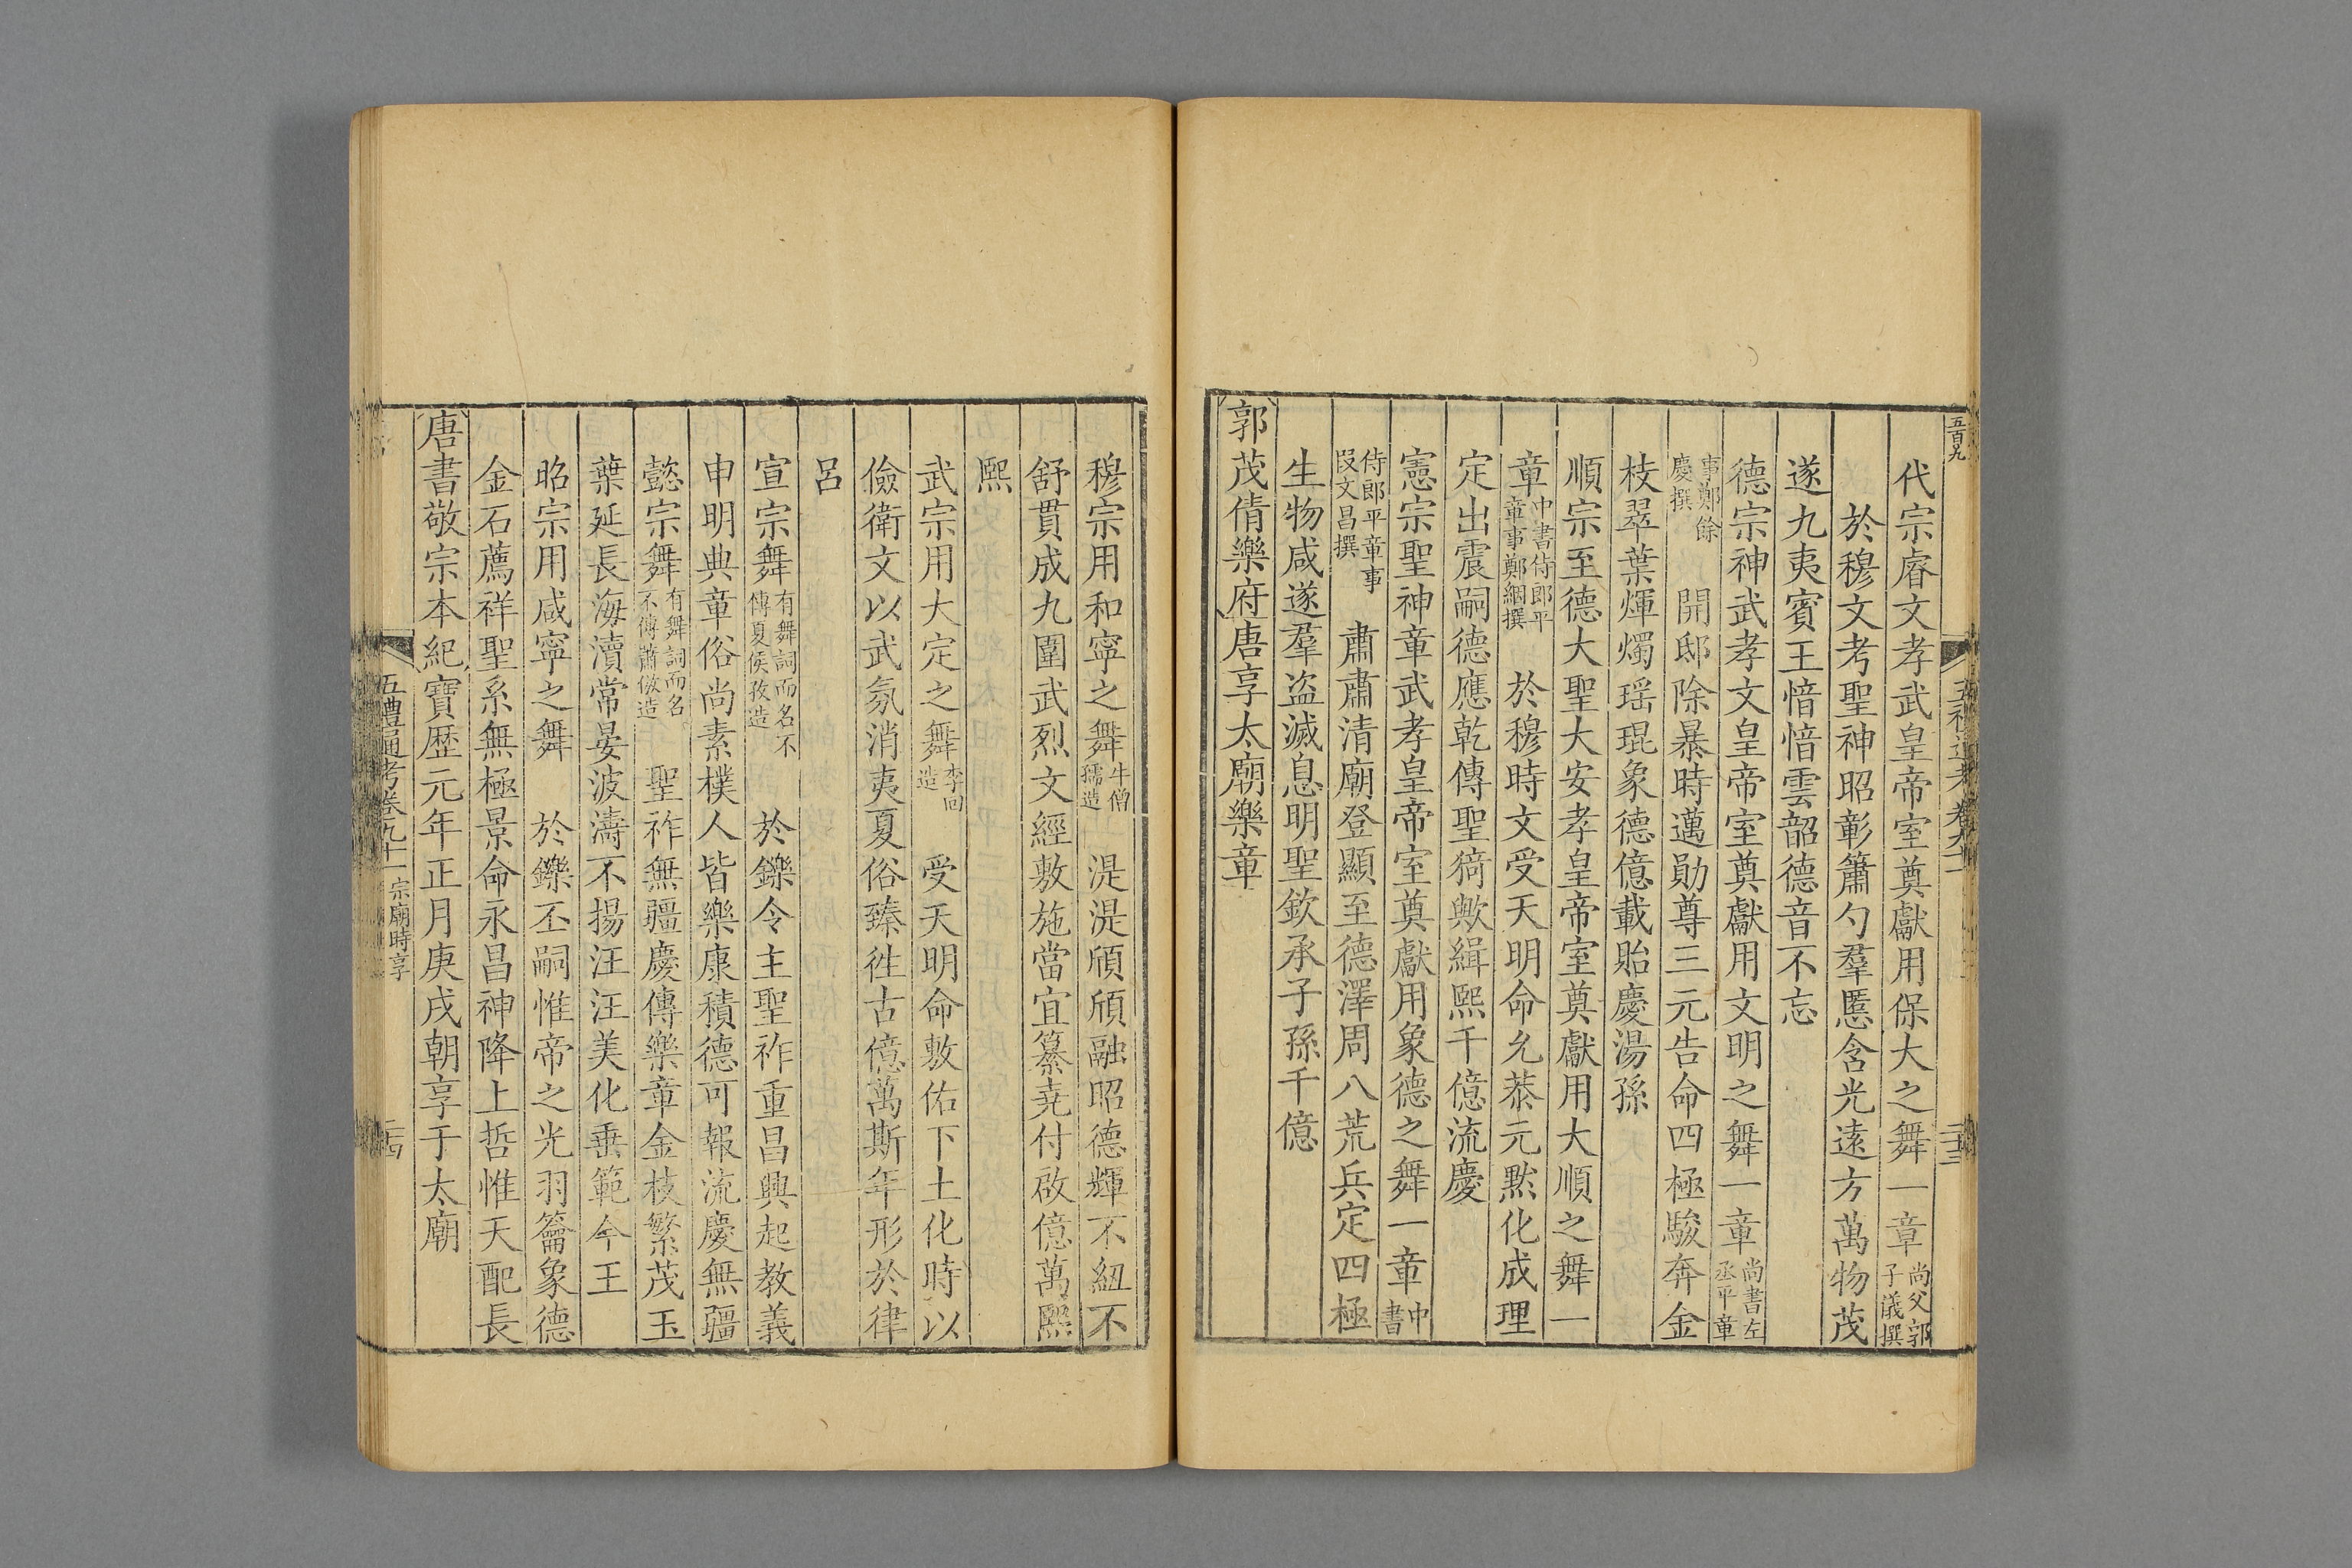 五百九
代宗睿文孝武皇帝室奠獻用保大之舞一章尚父郭子儀撰
於穆文考聖神昭彰簫勺羣慝含光遠方萬物茂
遂九夷賓王愔愔雲韶德音不忘
德宗神武孝文皇帝室奠獻用文明之舞一章尚書左丞平章
事鄭餘慶撰 開邸除暴時邁勛尊三元告命四極駿奔金
枝翠葉煇燭瑶琨象德億載貽慶湯孫
順宗至德大聖大安孝皇帝室奠獻用大順之舞一
章中書侍郎平章事鄭絪撰 於穆時文受天明命允恭元默化成理
定出震嗣德應乾傳聖猗歟緝熙千億流慶
憲宗聖神章武孝皇帝室奠獻用象德之舞一章中書
侍郎平章事段文昌撰 肅肅清廟登顯至德澤周八荒兵定四極
生物咸遂羣盜滅息明聖欽承子孫千億
郭茂倩樂府唐享太廟樂章
穆宗用和寧之舞牛僧孺造 湜湜頎頎融昭德輝不紐不
舒貫成九圍武烈文經敷施當宜纂堯付啟億萬熙
熙
武宗用大定之舞李回造 受天明命敷佑下土化時以
儉衛文以武氛消夷夏俗臻往古億萬斯年形於律
呂
宣宗舞有舞詞而名不傳夏侯孜造 於鑠令主聖祚重昌興起教義
申明典章俗尚素樸人皆樂康積德可報流慶無疆
懿宗舞有舞詞而名不傳蕭倣造 聖祚無疆慶傳樂章金枝繁茂玉
葉延長海瀆常晏波濤不揚汪汪美化垂範今王
昭宗用咸寧之舞 於鑠丕嗣惟帝之光羽籥象德
金石薦祥聖系無極景命永昌神降上哲惟天配長
唐書敬宗本紀寶歴元年正月庚戌朝享于太廟
五禮通考卷九十一 宗廟時享